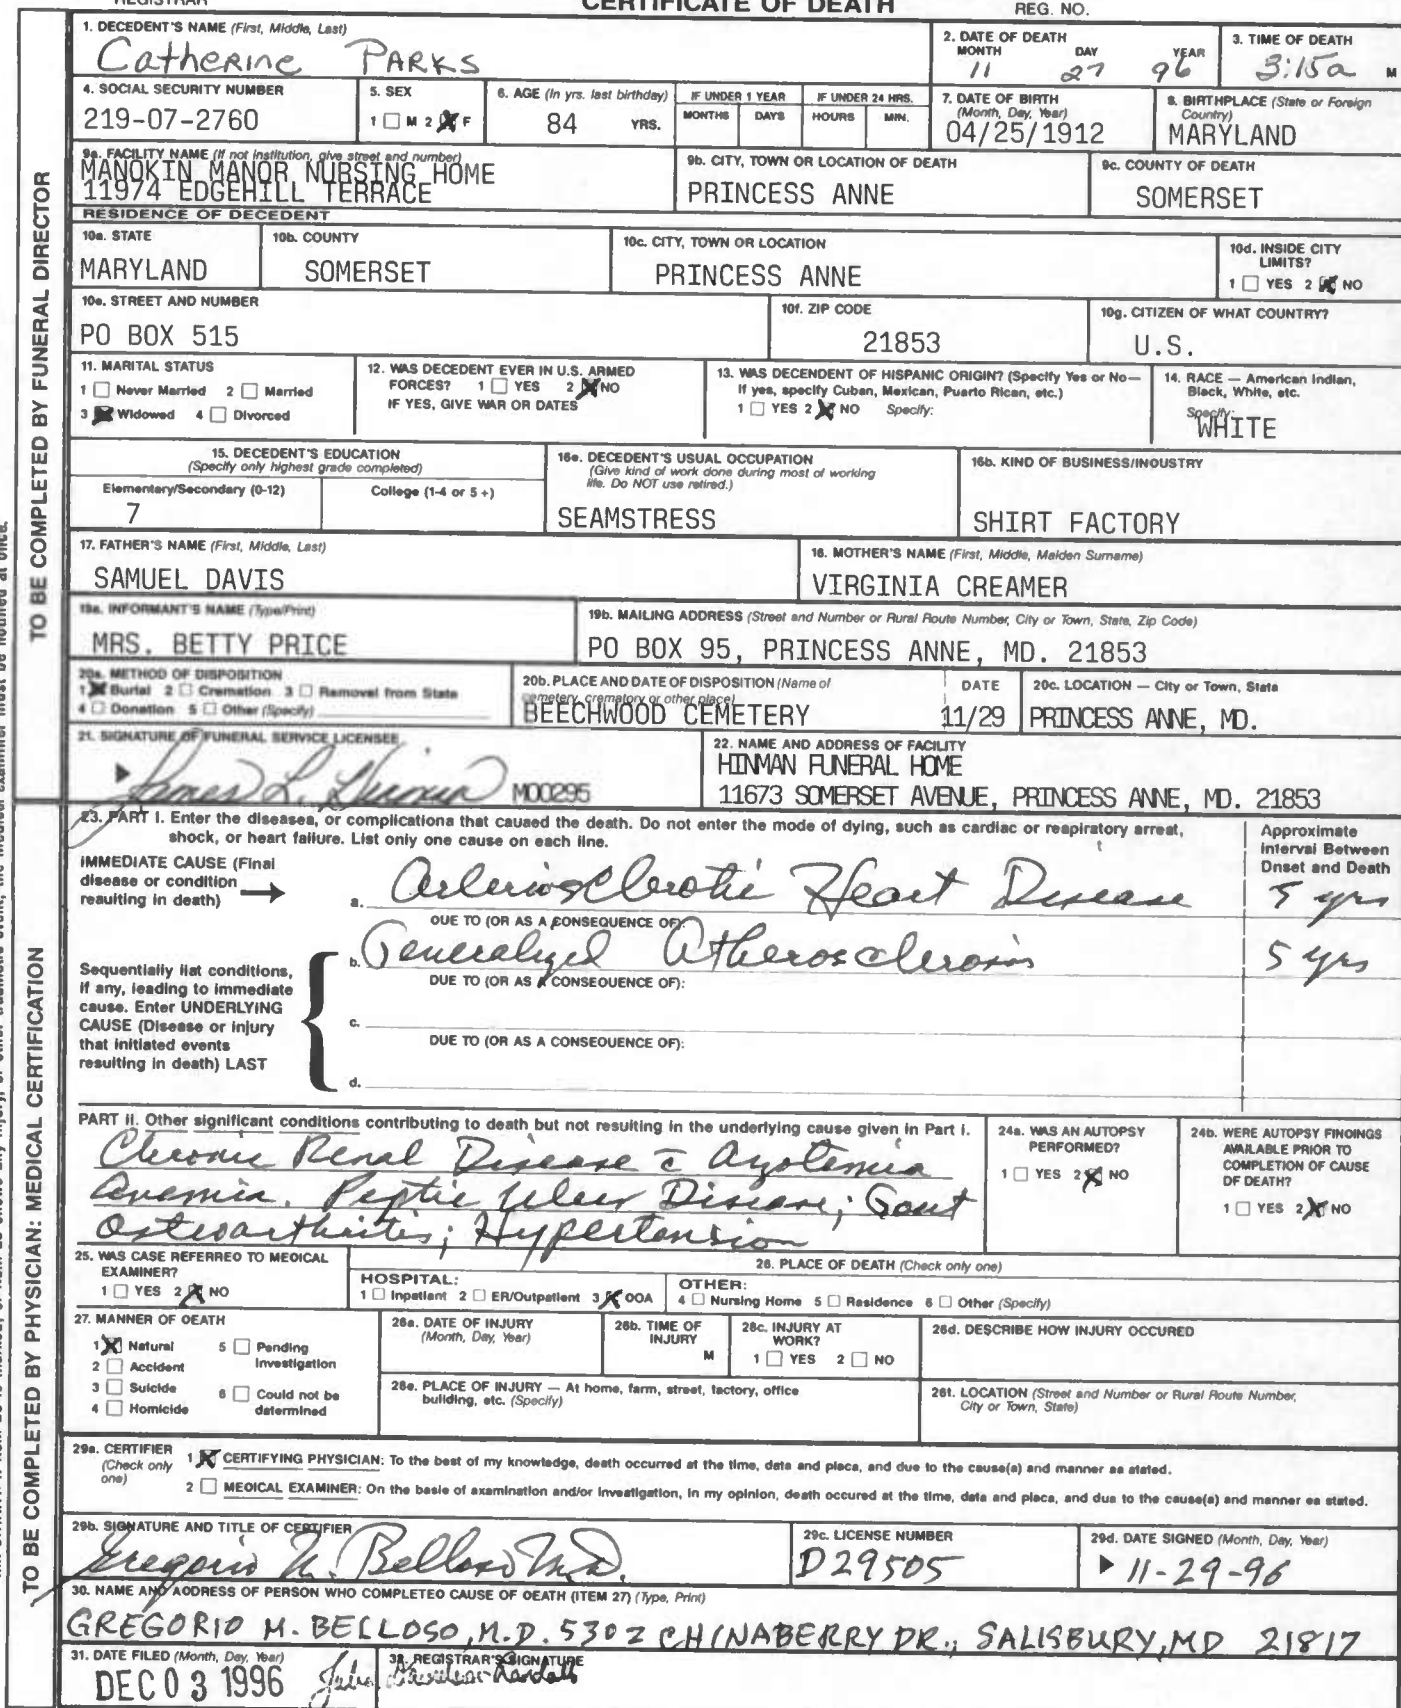 CERTIFICATE OF DEATH
REGISTRAR
REG. NO.
1. DECEDENT'S NAME (First, Middle, Last)
Catherine PARKS
2. DATE OF DEATH
MONTH DAY YEAR
11 27 96
3. TIME OF DEATH
3:15a M
4. SOCIAL SECURITY NUMBER
219-07-2760
5. SEX
1 M 2 F
6. AGE (In yrs. last birthday)
84 YRS.
IF UNDER 1 YEAR
MONTHS DAYS
IF UNDER 24 HRS.
HOURS MIN.
7. DATE OF BIRTH
(Month, Day, Year)
04/25/1912
8. BIRTHPLACE (State or Foreign
Country)
MARYLAND
9a. FACILITY NAME (If not institution, give street and number)
MANOKIN MANOR NURSING HOME
11974 EDGEHILL TERRACE
9b. CITY, TOWN OR LOCATION OF DEATH
PRINCESS ANNE
9c. COUNTY OF DEATH
SOMERSET
RESIDENCE OF DECEDENT
10a. STATE
MARYLAND
10b. COUNTY
SOMERSET
10c. CITY, TOWN OR LOCATION
PRINCESS ANNE
10d. INSIDE CITY
LIMITS?
1 YES 2 NO
10e. STREET AND NUMBER
PO BOX 515
10f. ZIP CODE
21853
10g. CITIZEN OF WHAT COUNTRY?
U.S.
11. MARITAL STATUS
1 Never Married 2 Married
3 Widowed 4 Divorced
12. WAS DECEDENT EVER IN U.S. ARMED
FORCES? 1 YES 2 NO
IF YES, GIVE WAR OR DATES
13. WAS DECENDENT OF HISPANIC ORIGIN? (Specify Yes or No—
If yes, specify Cuban, Mexican, Puarto Rican, etc.)
1 YES 2 NO Specify:
14. RACE — American Indian,
Black, White, etc.
Specify:
WHITE
15. DECEDENT'S EDUCATION
(Specify only highest grade completed)
Elementary/Secondary (0-12)
7
College (1-4 or 5 +)
16a. DECEDENT'S USUAL OCCUPATION
(Give kind of work done during most of working
life. Do NOT use retired.)
SEAMSTRESS
16b. KIND OF BUSINESS/INOUSTRY
SHIRT FACTORY
17. FATHER'S NAME (First, Middle, Last)
SAMUEL DAVIS
18. MOTHER'S NAME (First, Middle, Maiden Surname)
VIRGINIA CREAMER
19a. INFORMANT'S NAME (Type/Print)
MRS. BETTY PRICE
19b. MAILING ADDRESS (Street and Number or Rural Route Number, City or Town, State, Zip Code)
PO BOX 95, PRINCESS ANNE, MD. 21853
20a. METHOD OF DISPOSITION
1 Burial 2 Cremation 3 Removal from State
4 Donation 5 Other (Specify)
20b. PLACE AND DATE OF DISPOSITION (Name of
cemetery, crematory or other place)
BEECHWOOD CEMETERY
DATE
11/29
20c. LOCATION — City or Town, State
PRINCESS ANNE, MD.
21. SIGNATURE OF FUNERAL SERVICE LICENSEE
James L. Hinman M00295
22. NAME AND ADDRESS OF FACILITY
HINMAN FUNERAL HOME
11673 SOMERSET AVENUE, PRINCESS ANNE, MD. 21853
TO BE COMPLETED BY FUNERAL DIRECTOR
23. PART I. Enter the diseases, or complications that caused the death. Do not enter the mode of dying, such as cardiac or respiratory arrest,
shock, or heart failure. List only one cause on each line.
Approximate
Interval Between
Onset and Death
IMMEDIATE CAUSE (Final
disease or condition
resulting in death)
a. Arteriosclerotic Heart Disease 5 yrs
DUE TO (OR AS A CONSEQUENCE OF):
b. Generalized Atherosclerosis 5 yrs
DUE TO (OR AS A CONSEOUENCE OF):
Sequentially list conditions,
if any, leading to immediate
cause. Enter UNDERLYING
CAUSE (Disease or injury
that initiated events
resulting in death) LAST
c.
DUE TO (OR AS A CONSEOUENCE OF):
d.
PART II. Other significant conditions contributing to death but not resulting in the underlying cause given in Part I.
Chronic Renal Disease c̄ Azotemia
Anemia. Peptic Ulcer Disease; Gout
Osteoarthritis; Hypertension
24a. WAS AN AUTOPSY
PERFORMED?
1 YES 2 NO
24b. WERE AUTOPSY FINOINGS
AVAILABLE PRIOR TO
COMPLETION OF CAUSE
OF DEATH?
1 YES 2 NO
25. WAS CASE REFERRED TO MEOICAL
EXAMINER?
1 YES 2 NO
26. PLACE OF DEATH (Check only one)
HOSPITAL:
1 Inpatient 2 ER/Outpatient 3 OOA
OTHER:
4 Nursing Home 5 Residence 6 Other (Specify)
27. MANNER OF OEATH
1 Natural 5 Pending
Investigation
2 Accident
3 Suicide 6 Could not be
determined
4 Homicide
28a. DATE OF INJURY
(Month, Day, Year)
28b. TIME OF
INJURY
M
28c. INJURY AT
WORK?
1 YES 2 NO
28d. DESCRIBE HOW INJURY OCCURED
28e. PLACE OF INJURY — At home, farm, street, factory, office
building, etc. (Specify)
28f. LOCATION (Street and Number or Rural Route Number,
City or Town, State)
29a. CERTIFIER
(Check only
one)
1 CERTIFYING PHYSICIAN: To the best of my knowledge, death occurred at the time, data and placa, and due to the cause(a) and manner as atated.
2 MEOICAL EXAMINER: On the basie of axamination and/or Invastigation, in my opinion, death occured at the time, data and placa, and dua to the cause(a) and manner ea stated.
29b. SIGNATURE AND TITLE OF CERTIFIER
Gregorio M. Belloso M.D.
29c. LICENSE NUMBER
D29505
29d. DATE SIGNED (Month, Day, Year)
11-29-96
30. NAME AND AODRESS OF PERSON WHO COMPLETEO CAUSE OF OEATH (ITEM 27) (Type, Print)
GREGORIO M. BELLOSO, M.D. 5302 CHINABERRY DR., SALISBURY, MD 21817
31. DATE FILED (Month, Day, Year)
DEC 03 1996
32. REGISTRAR'S SIGNATURE
TO BE COMPLETED BY PHYSICIAN: MEDICAL CERTIFICATION